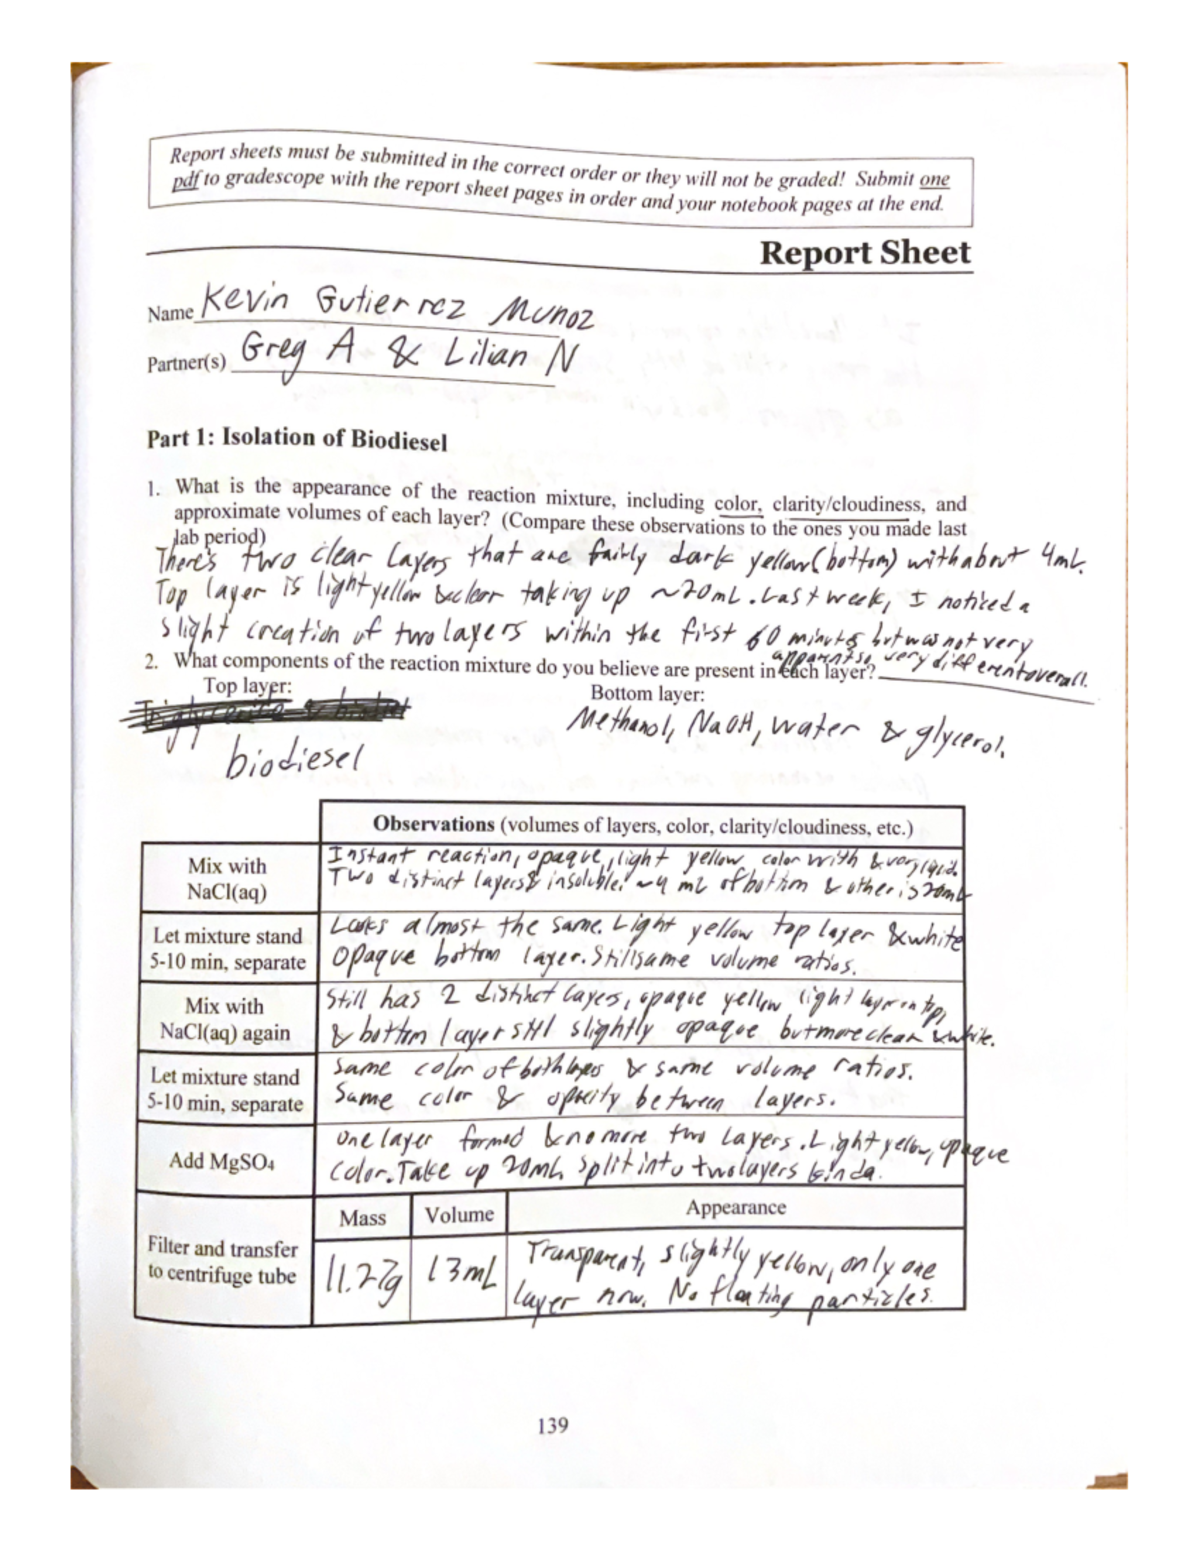 Report sheets must be submitted in the correct order or they will not be graded! Submit one
pdf to gradescope with the report sheet pages in order and your notebook pages at the end.
Report Sheet
Name Kevin Gutierrez Munoz
Partner(s) Greg A & Lilian N
Part 1: Isolation of Biodiesel
1. What is the appearance of the reaction mixture, including color, clarity/cloudiness, and
approximate volumes of each layer? (Compare these observations to the ones you made last
lab period)
There's two clear layers that are fairly dark yellow (bottom) with about 4mL.
Top layer is light yellow & clear taking up ~20mL. Last week, I noticed a
slight creation of two layers within the first 60 minutes but was not very
apparent so very different overall.
2. What components of the reaction mixture do you believe are present in each layer?
Top layer: Bottom layer:
Methanol, NaOH, water & glycerol.
biodiesel
Observations (volumes of layers, color, clarity/cloudiness, etc.)
Mix with
NaCl(aq)
Instant reaction, opaque, light yellow color with & very liquid.
Two distinct layers & insoluble. ~4 mL of bottom & other is 20mL
Let mixture stand
5-10 min, separate
Looks almost the same. Light yellow top layer & white
opaque bottom layer. Still same volume ratios.
Mix with
NaCl(aq) again
Still has 2 distinct layers, opaque yellow light layer on top,
& bottom layer still slightly opaque but more clear & white.
Let mixture stand
5-10 min, separate
Same color of both layers & same volume ratios.
Same color & opacity between layers.
Add MgSO4
One layer formed & no more two layers. Light yellow, opaque
color. Take up 20mL split into two layers kinda.
Filter and transfer
to centrifuge tube
Mass Volume Appearance
11.27g 13mL Transparent, slightly yellow, only one
layer now. No floating particles.
139